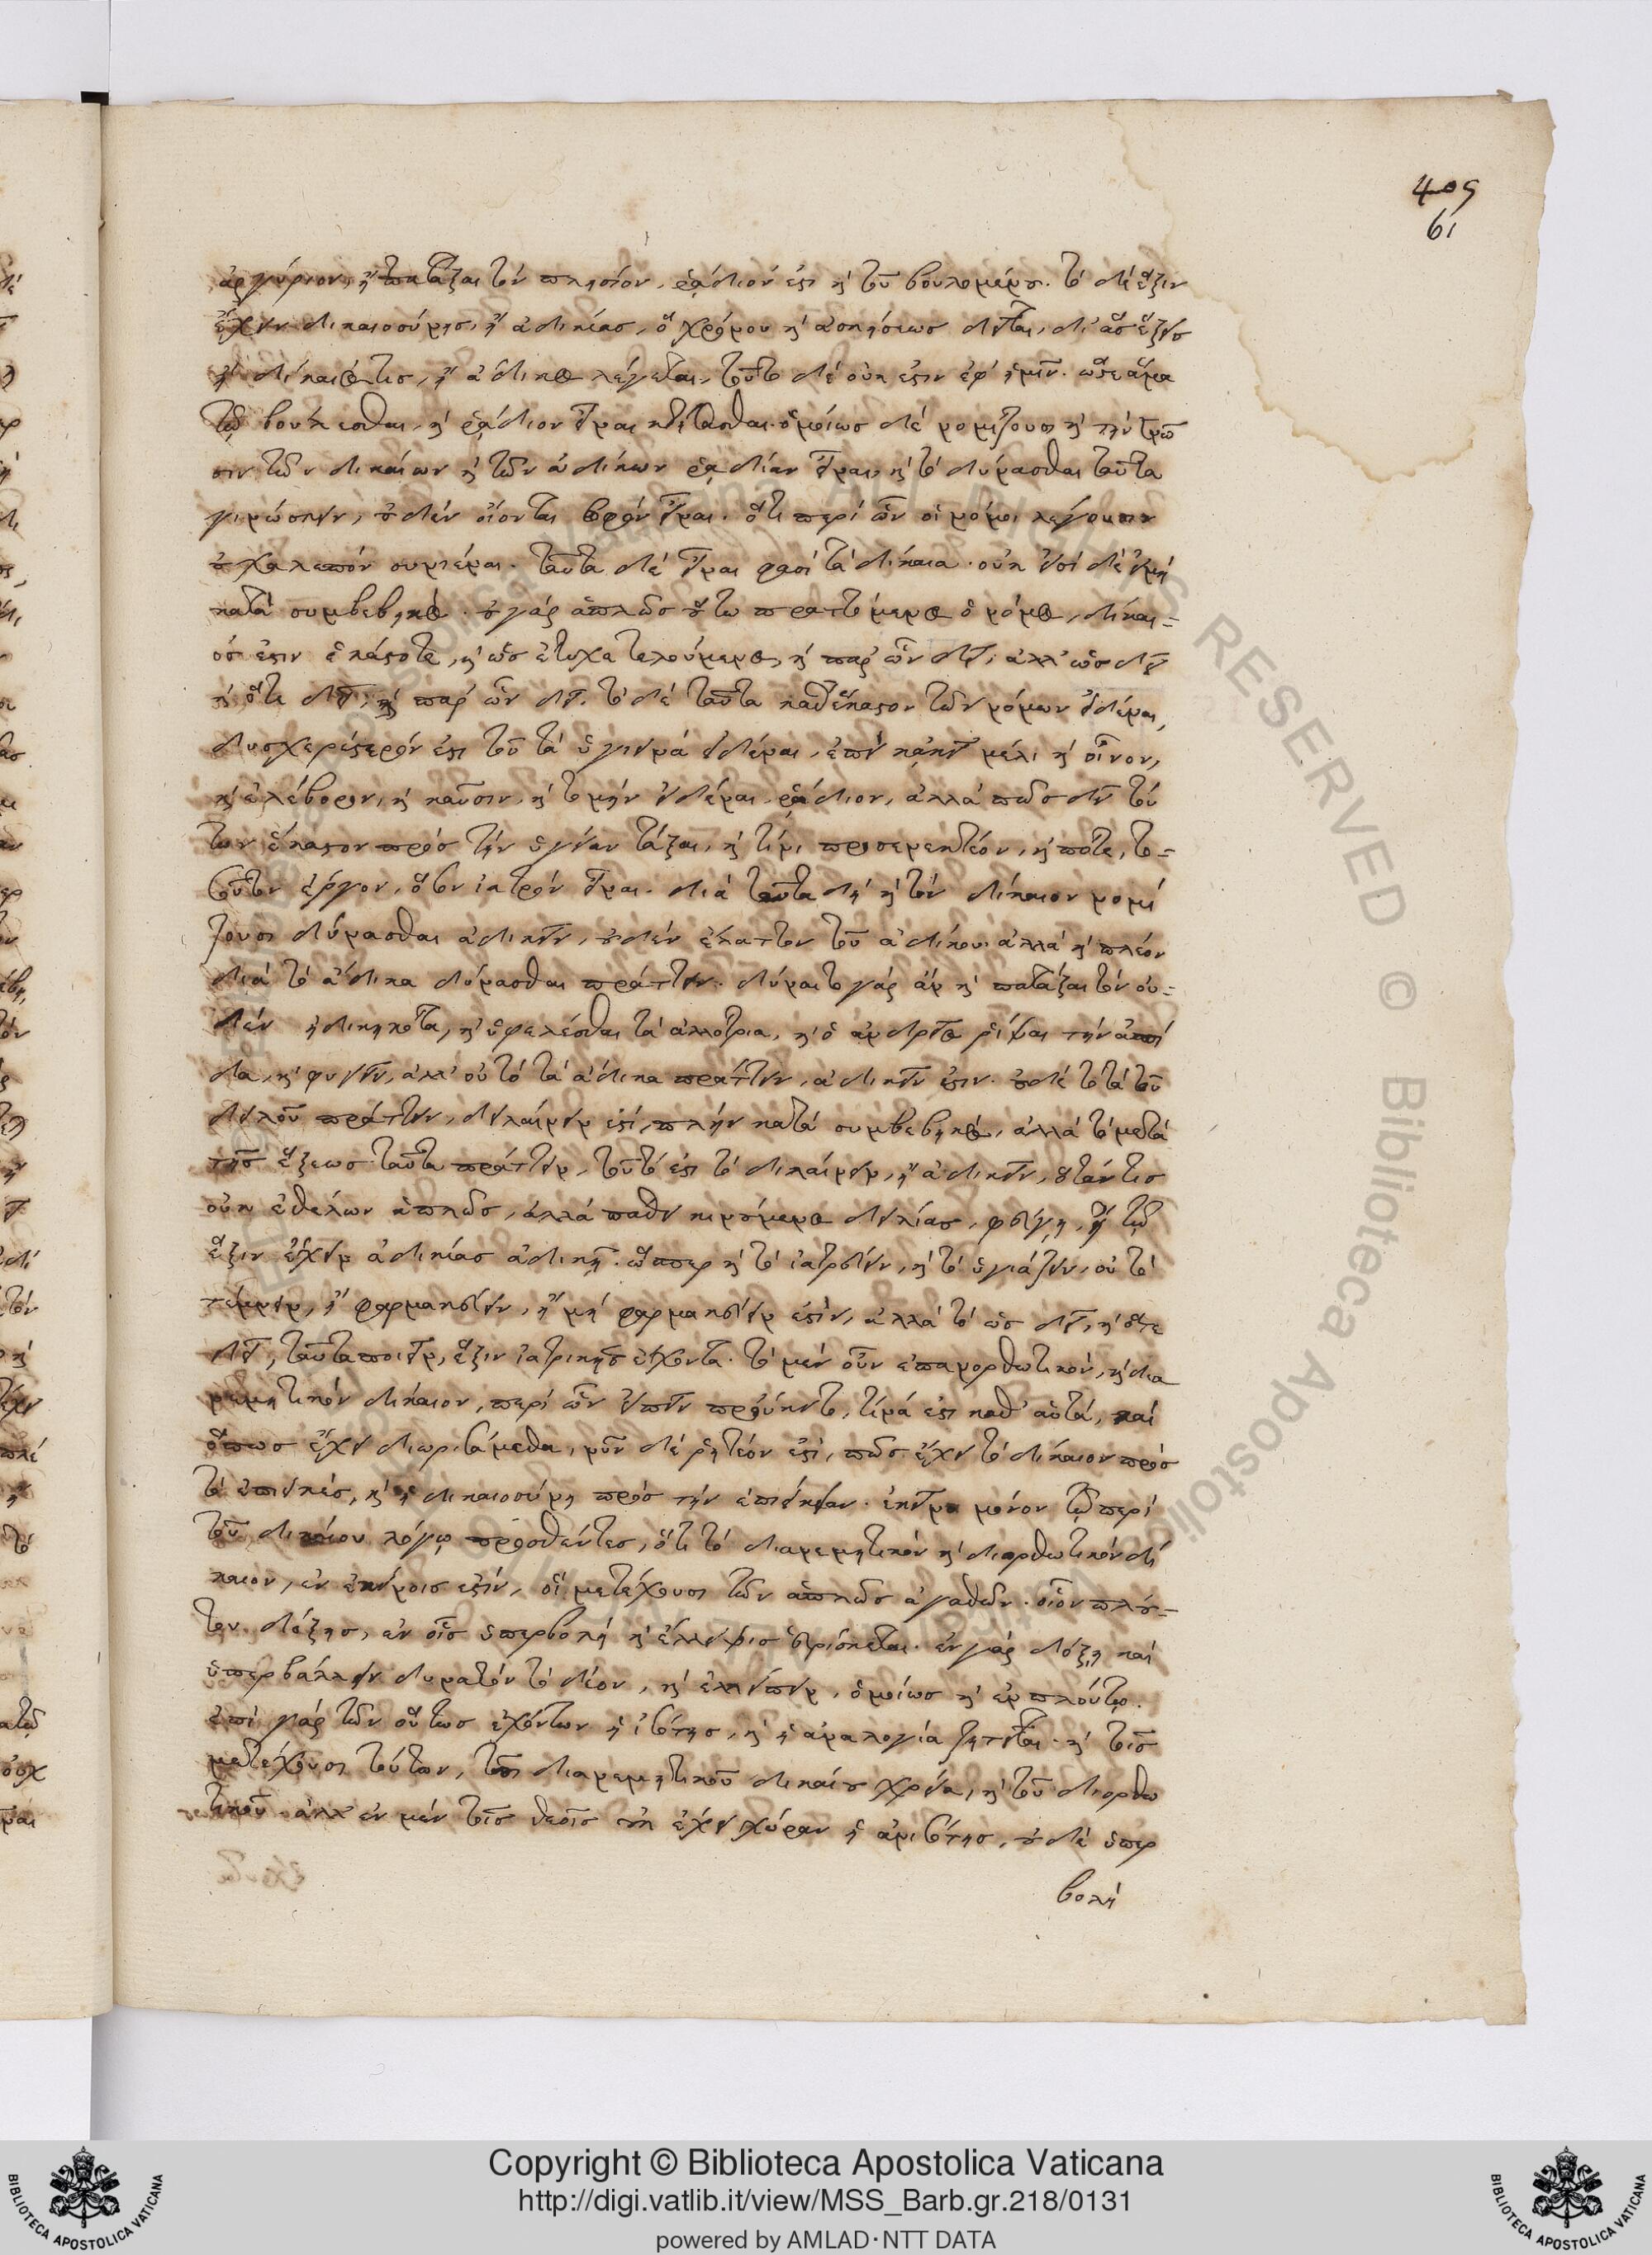 409
61
ἀργύριον, ἢ πατάξαι τὸν πλησίον, ῥᾴδιόν ἐστι καὶ τοῦ βουλομένου. τὸ δὲ ἕξιν
ἔχειν δικαιοσύνης, ἢ ἀδικίας, ὃ χρόνου καὶ ἀσκήσεως δεῖται, δι' ἃς ἕξεις
καὶ δίκαιός τις, ἢ ἄδικος λέγεται, τοῦτο δὲ οὐκ ἔστιν ἐφ' ἡμῖν. ὥστε ἅμα
τῷ βούλεσθαι, καὶ ῥᾴδιον εἶναι κτήσασθαι. ὁμοίως δὲ νομίζουσι καὶ τὴν γνῶ
σιν τῶν δικαίων καὶ τῶν ἀδίκων ῥᾳδίαν εἶναι, καὶ τὸ δύνασθαι ταῦτα
γινώσκειν, οὐδὲν οἴονται σοφὸν εἶναι. ὅτι περὶ ὧν οἱ νόμοι λέγουσιν
οὐ χαλεπὸν συνιέναι. ταῦτα δὲ εἶναί φασι τὰ δίκαια. οὐκ εἰσὶ δὲ εἰ μὴ
κατὰ συμβεβηκός. οὐ γὰρ ἁπλῶς οὕτω πραττόμενος ὁ νόμος, δίκαι=
ός ἐστιν ἑκάστοτε, καὶ ὡς ἔτυχε τελούμενος, καὶ παρ' ὧν δεῖ, ἀλλ' ὡς δεῖ
καὶ ὅτε δεῖ, καὶ παρ' ὧν δεῖ. τὸ δὲ ταῦτα καθ' ἕκαστον τῶν νόμων εἰδέναι,
δυσχερέστερόν ἐστι τοῦ τὰ ὑγιεινὰ εἰδέναι, ἐπεὶ κἀκεῖ μέλι καὶ οἶνον,
καὶ ἐλέβορον, καὶ καῦσιν, καὶ τομὴν εἰδέναι ῥᾴδιον, ἀλλὰ πῶς δεῖ τού
των ἕκαστον πρὸς τὴν ὑγείαν τάξαι, καὶ τίνι προσενεκτέον, καὶ πότε, το=
σοῦτον ἔργον, ὅσον ἰατρὸν εἶναι. διὰ ταῦτα δὴ καὶ τὸν δίκαιον νομί
ζουσι δύνασθαι ἀδικεῖν, οὐδὲν ἔλαττον τοῦ ἀδίκου. ἀλλὰ καὶ πλέον
διὰ τὸ ἄδικα δύνασθαι πράττειν. δύναιτο γὰρ ἂν καὶ πατάξαι τὸν οὐ=
δὲν ἠδικηκότα, καὶ ὑφελέσθαι τὰ ἀλλότρια, καὶ ὁ ἀνδρεῖος ῥίψαι τὴν ἀσπί
δα, καὶ φυγεῖν, ἀλλ' οὐ τὸ τὰ ἄδικα πράττειν, ἀδικεῖν ἐστιν. οὐδὲ τὸ τὰ τοῦ
δειλοῦ πράττειν, δειλαίνειν ἐστὶ, πλὴν κατὰ συμβεβηκός, ἀλλὰ τὸ μετὰ
τῆς ἕξεως ταῦτα πράττειν, τοῦτό ἐστι τὸ δειλαίνειν, ἢ ἀδικεῖν, ὅταν τις
οὐκ ἐθέλων ἁπλῶς, ἀλλὰ πάθει κινούμενος δειλίας, φεύγῃ, ἢ τῷ
ἕξιν ἔχειν ἀδικίας ἀδικῇ. ὥσπερ καὶ τὸ ἰατρεύειν, καὶ τὸ ὑγιάζειν, οὐ τὸ
τέμνειν, ἢ φαρμακεύειν, ἢ μὴ φαρμακεύειν ἐστὶν, ἀλλὰ τὸ ὡς δεῖ, καὶ ὅτε
δεῖ, ταῦτα ποιεῖν, ἕξιν ἰατρικῆς ἔχοντα. τὸ μὲν οὖν ἐπανορθωτικὸν, καὶ δια
νεμητικὸν δίκαιον, περὶ ὧν εἰπεῖν προὔκειτο, τίνα ἐστὶ καθ' αὑτὰ, καὶ
ὅπως ἔχει διωρισάμεθα, νῦν δὲ ῥητέον ἐστὶ, πῶς ἔχει τὸ δίκαιον πρὸς
τὸ ἐπιεικὲς, καὶ ἡ δικαιοσύνη πρὸς τὴν ἐπιείκειαν. ἐκεῖνο μόνον τῷ περὶ
τοῦ δικαίου λόγῳ προσθέντες, ὅτι τὸ διανεμητικὸν καὶ διορθωτικὸν δί
καιον, ἐν ἐκείνοις ἐστὶν, οἳ μετέχουσι τῶν ἁπλῶς ἀγαθῶν. οἷον πλού=
του, δόξης, ἐν οἷς ὑπερβολὴ καὶ ἔλλειψις εὑρίσκεται. ἐν γὰρ δόξῃ καὶ
ὑπερβάλλειν δυνατὸν τὸ δέον, καὶ ἐλλείπειν, ὁμοίως καὶ ἐν πλούτῳ.
ἐπὶ γὰρ τῶν οὕτως ἐχόντων ἡ ἰσότης, καὶ ἡ ἀναλογία ζητεῖται. καὶ τοῖς
μετέχουσι τούτων, τοῦ διανεμητικοῦ δικαίου χρεία, καὶ τοῦ διορθω
τικοῦ. ἀλλ' ἐν μὲν τοῖς θεοῖς οὐκ ἔχει χώραν ἡ ἀνισότης, οὐδὲ ὑπερ
βολὴ
Copyright © Biblioteca Apostolica Vaticana
http://digi.vatlib.it/view/MSS_Barb.gr.218/0131
powered by AMLAD·NTT DATA